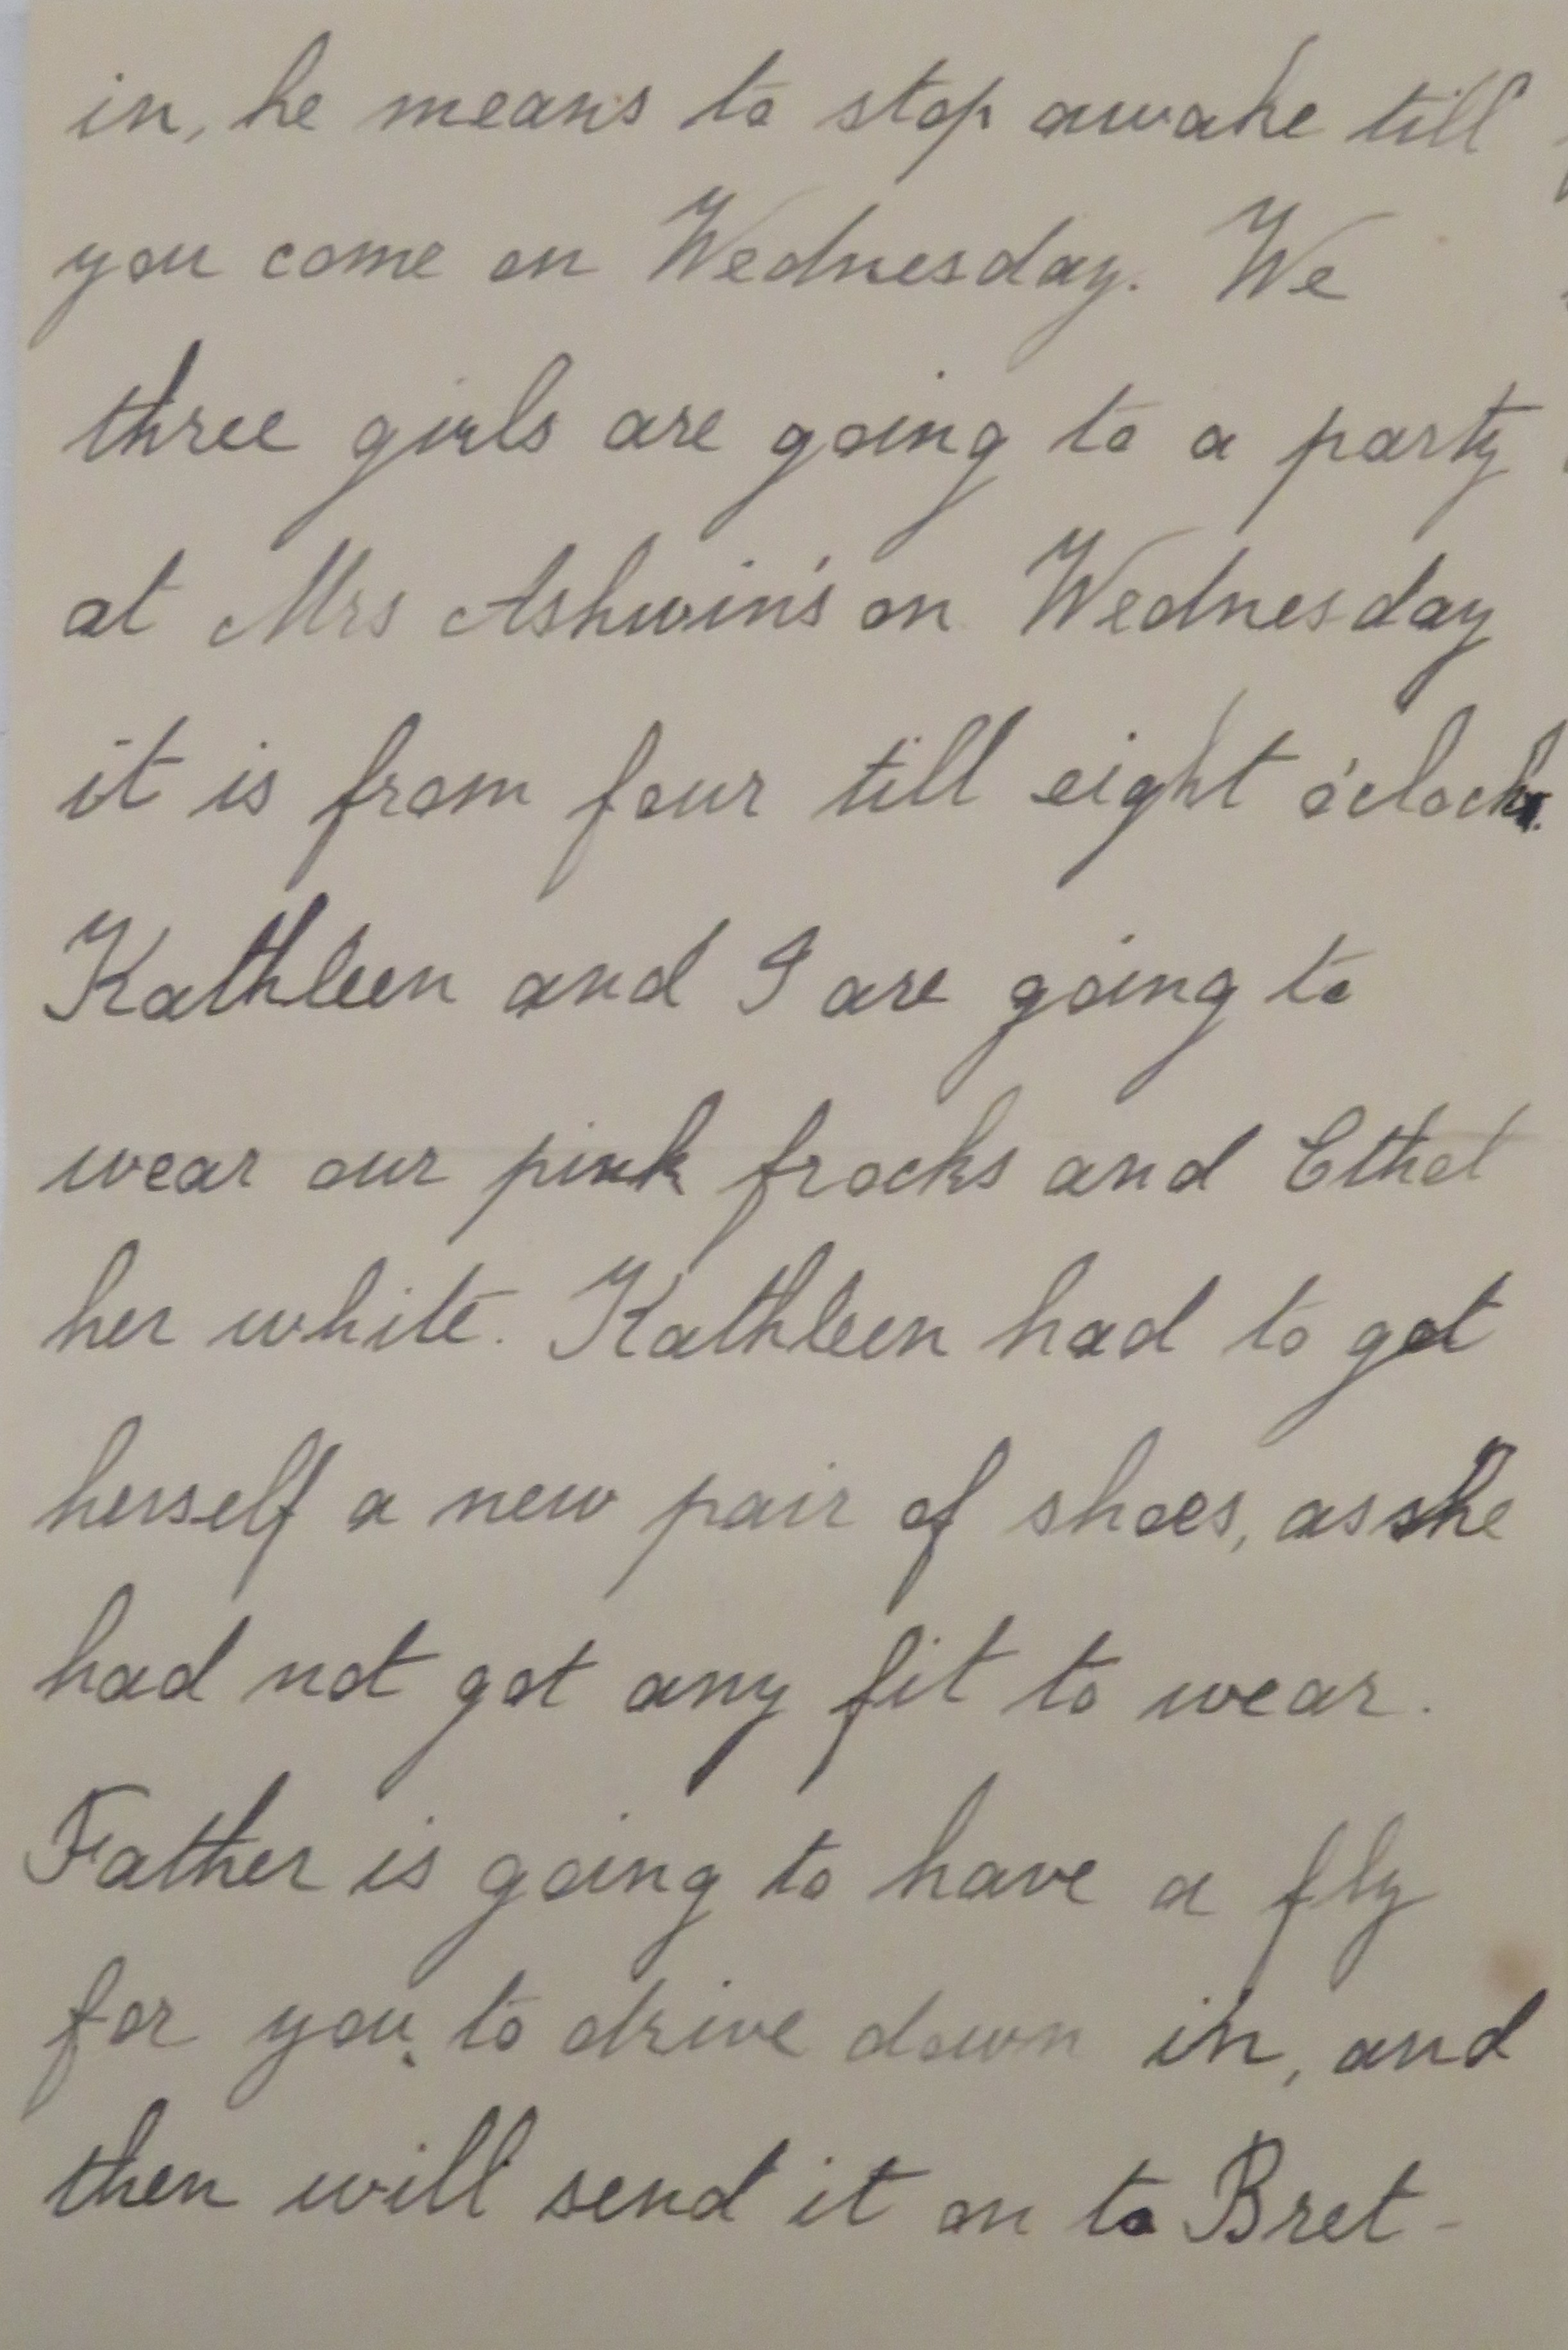 in, he means to stop awake till
you come on Wednesday. We
three girls are going to a party
at Mrs Ashwin's on Wednesday
it is from four till eight o'clock.
Kathleen and I are going to
wear our pink frocks and Ethel
her white. Kathleen had to get
herself a new pair of shoes, as she
had not got any fit to wear.
Father is going to have a fly
for you, to drive down in, and
then will send it on to Bret-